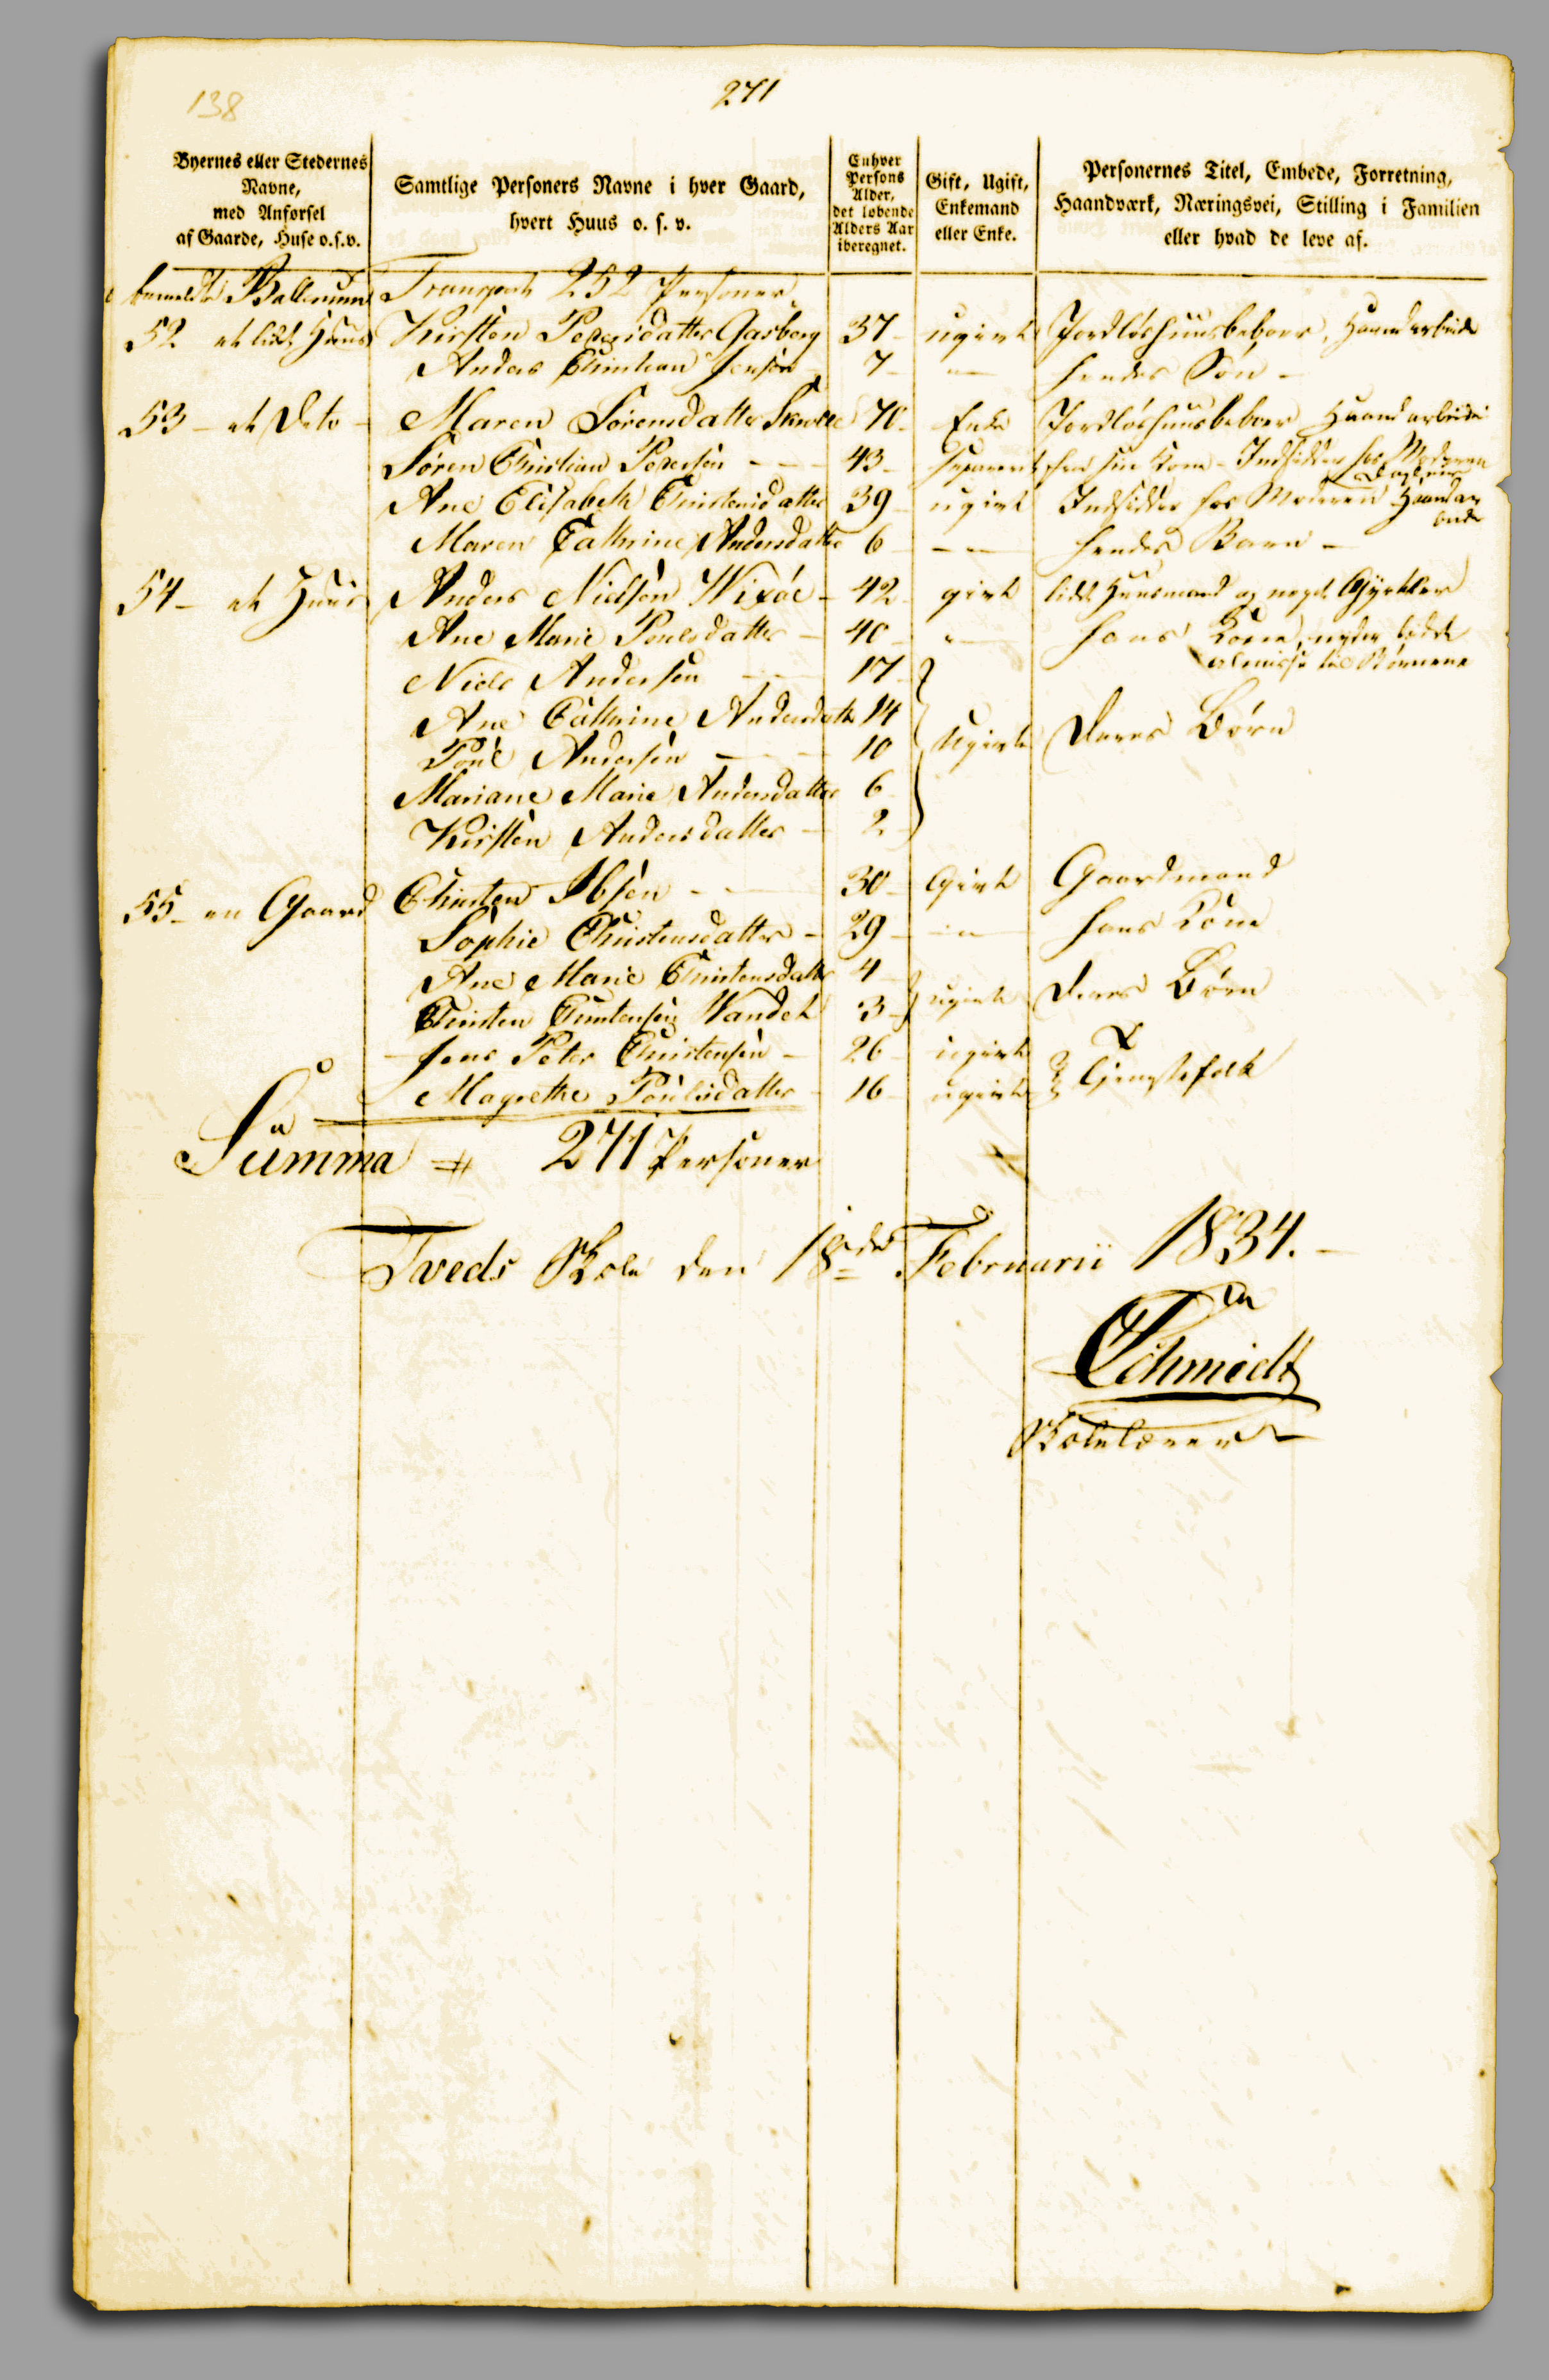 138
271
Byernes eller Stedernes Navne, med Anførsel af Gaarde, Huse o.s.v.
Samtlige Personers Navne i hver Gaard, hvert Huus o. s. v.
Enhver Persons Alder, det løbende Alders Aar iberegnet.
Gift, Ugift, Enkemand eller Enke.
Personernes Titel, Embede, Forretning, Haandværk, Næringsvei, Stilling i Familien eller hvad de leve af.
Ballerum Transport 252 Personer
52 et lidt Huus Kirsten Pedersdatter Gasberg 37 ugivt Jordløshuusbeboer, Haandarbeide
Anders Christian Jensen 7 " hendes Søn
53 - et Dito - Maren Sørensdatter 70 Enke Jordløshuusbeboer Haandarbeide
Søren Christian Pedersen - - - 43 Separeret fra sin Kone - Indsidder hos Moderen
Ane Elisabeth Christensdatter 39 ugivt Indsidder hos Moderen
Maren Cathrine Andersdatter 6 - - hendes Barn -
54 - et Huus Anders Nielsen Wixøe - 42 givt lidt Huusmand og
Ane Marie Poulsdatter - 40 " hans Kone, nyder lidt
Almisse til Børnene
Niels Andersen 17
Ane Cathrine Andersdatter 14
Poul Andersen 10 Ugivte Deres Børn
Mariane Marie Andersdatter 6
Kirsten Andersdatter - 2
55 - en Gaard Christen Ibsen - 30 Givt Gaardmand
Sophie Christensdatter - 29 - " - hans Kone
Ane Marie Christensdatter 4
Christen Christensen Vandet 3 ugivte Deres Børn
Jens Peter Christensen - 26 ugivt
Magrethe Poulsdatter - 16 ugivt Tjenstefolk
Summa 271 Personer
Tveds Skole den 18de Februarii 1834. -
Schmidt
Skolelærer